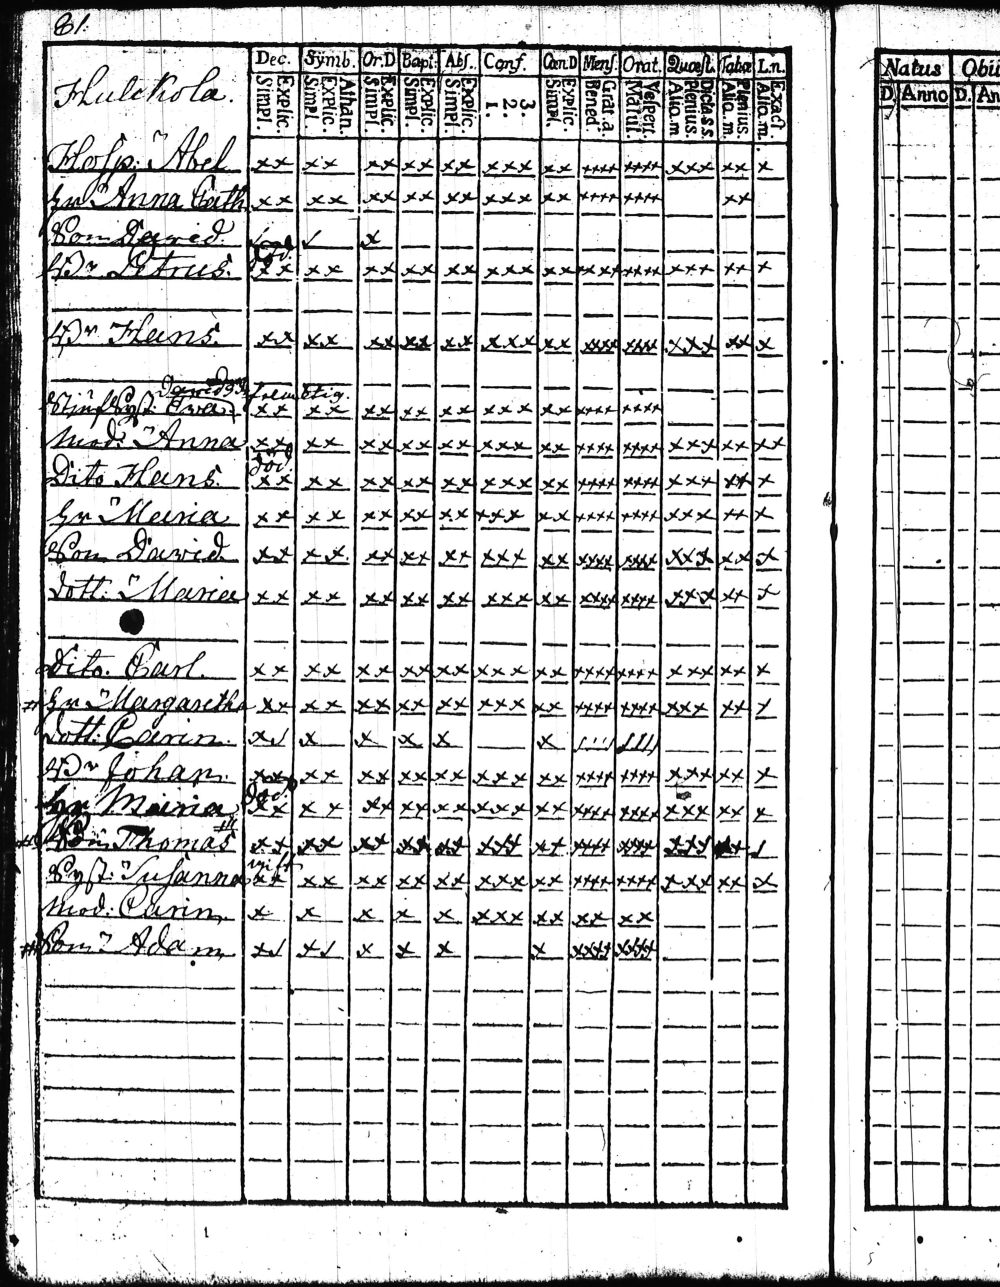 81.
Dec. Symb. Or.D Bapt. Abs. Conf. Cœn.D Mens. Orat. Quæst. Tabæ L.n.
Explic. Simpl. Athan. Explic. Simpl. Explic. Simpl. Explic. Simpl. Explic. Simpl. 3. 2. 1. Explic. Simpl. Grat.a. Bened. Vespert. Matut. Dictas s. Plenius. Aliq.m. Plenius. Aliq.m. Exact Aliq.m.
Natus Obii
D. Anno D. An
Hulckola.
Hosp: Abel xx xx xx xx xx xxx xx xxxx xxxx xxx xx x
hr Anna Cath xx xx xx xx xx xxx xx xxxx xxxx xx
Son David. x
död.
Br Petrus. xx xx xx xx xx xxx xx xxxx xxxx xxx xx x
Br Hans. xx xx xx xx xx xxx xx xxxx xxxx xxx xx x
Eva xx xx xx xx xx xxx xx xxxx xxxx
Mod: Anna xx xx xx xx xx xxx xx xxxx xxxx xxx xx xx
död.
Dito Hans. xx xx xx xx xx xxx xx xxxx xxxx xxx xx x
hr Maria xx xx xx xx xx xxx xx xxxx xxxx xxx xx x
Son David xx xx xx xx xx xxx xx xxxx xxxx xxx xx x
dott: Maria xx xx xx xx xx xxx xx xxxx xxxx xxx xx x
Dito. Carl. xx xx xx xx xx xxx xx xxxx xxxx xxx xx x
# hr Margaretha xx xx xx xx xx xxx xx xxxx xxxx xxx xx x
dott: Carin. x x x x x x
Br Johan. xx xx xx xx xx xxx xx xxxx xxxx xxx xx x
död
hr Maria xx xx xx xx xx xxx xx xxxx xxxx xxx xx x
Son Thomas xx xx xx xx xx xxx xx xxxx xxxx xxx xx
Syst: Susanna xx xx xx xx xx xxx xx xxxx xxxx xxx xx x
Mod: Carin x x x x x xxx xx xx xx
# Son Adam x x x x x x xxxx xxxx